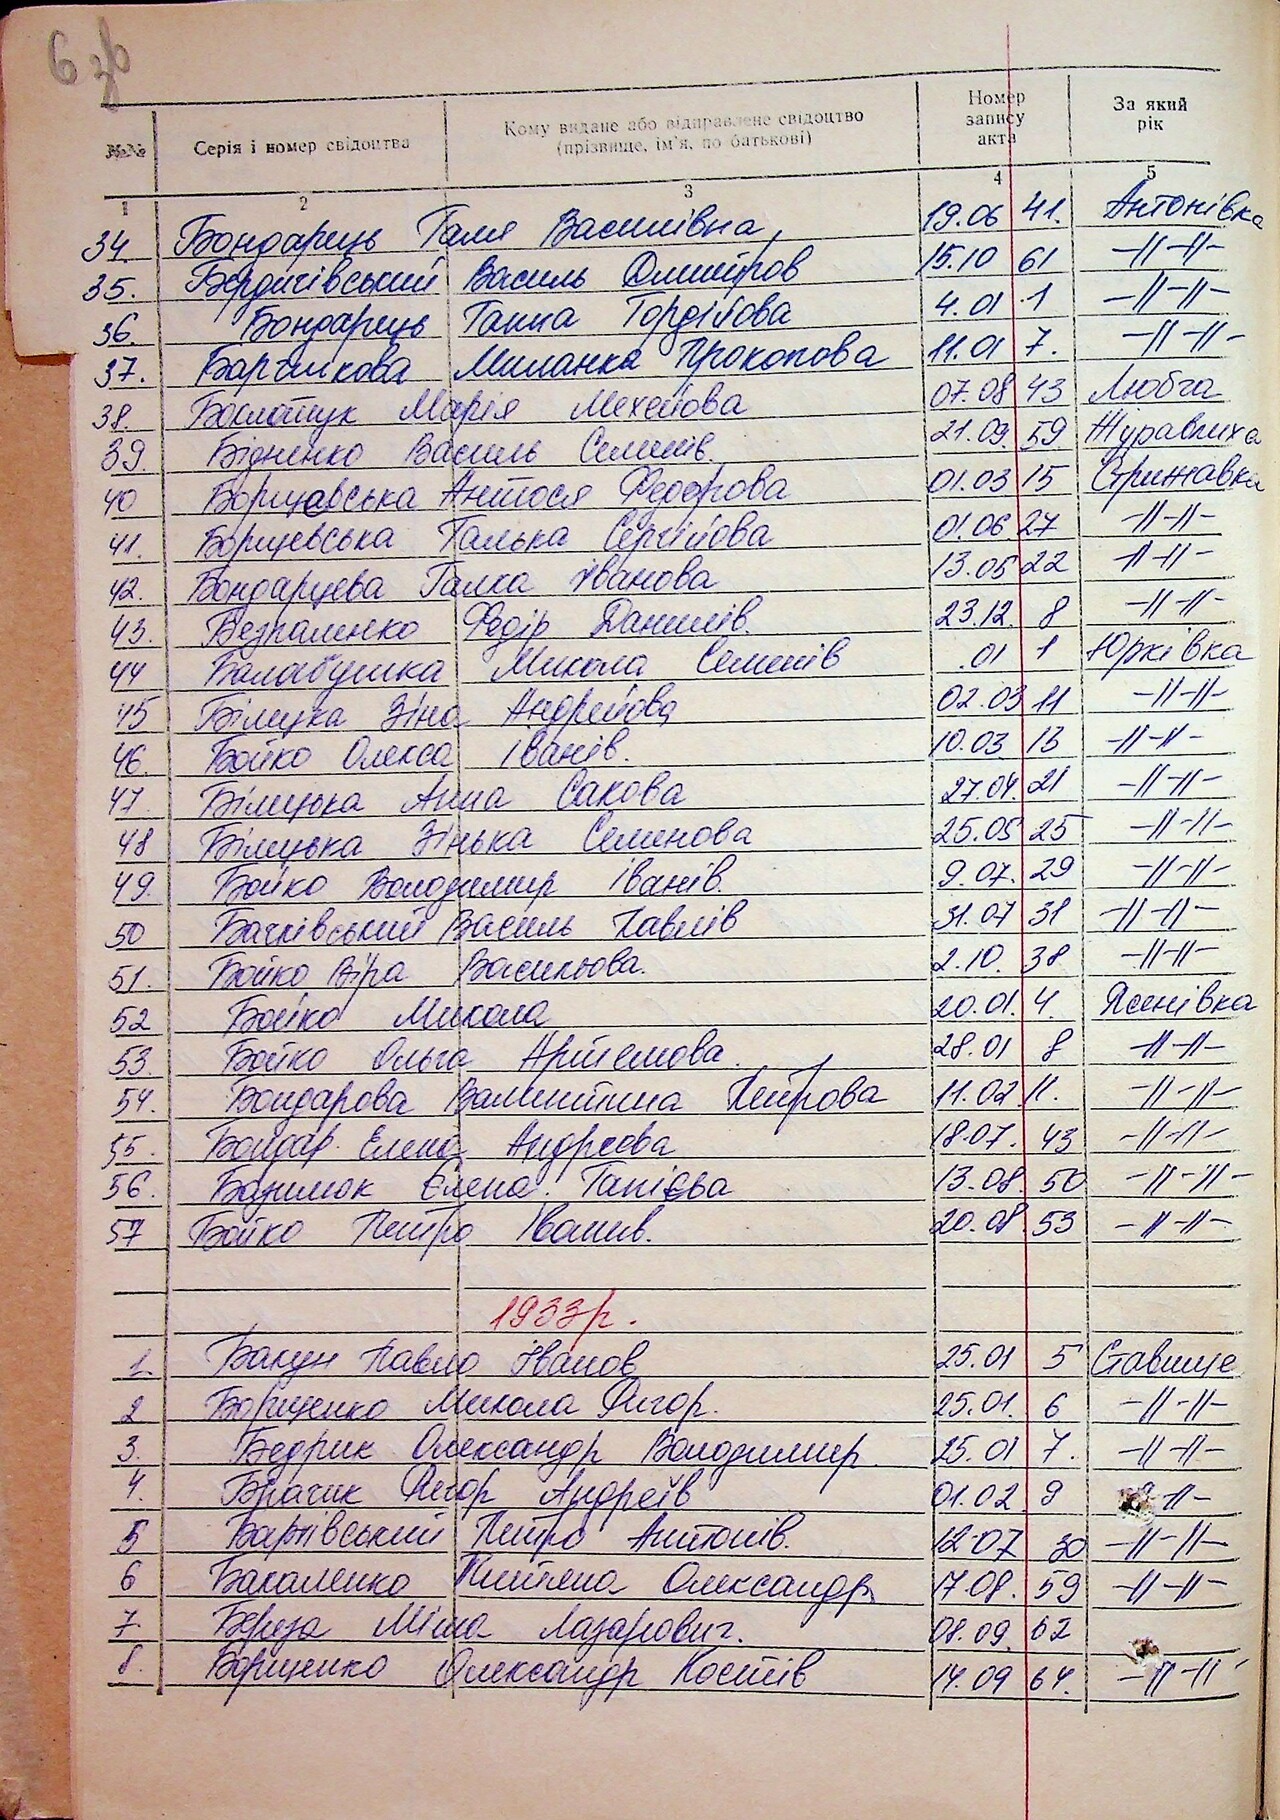 6 зв
№№ Серія і номер свідоцтва Кому видане або відправлене свідоцтво (прізвище, ім'я, по батькові) Номер запису акта За який рік
1 2 3 4 5
34. Бондарець Галя Василівна, 19.06 41. Антонівка
35. Бердичівський Василь Дмитров 15.10 61 -//-//-
36. Бондарець Ганна Гордійова 4.01 1 -//-//-
37. Миланка Прокопова 11.01 7. -//-//-
38. Марія 07.08 43 Любча
39. Бідненко Василь Семенів. 21.09. 59 Журавлиха
40 Борщавська Антося Федорова 01.03 15 Стрижавка
41. Борщевська Галька Сергійова 01.06 27 -//-//-
42. Бондарцева Галка Іванова 13.05 22 -//-//-
43. Безпаленко Федір Данилів. 23.12. 8 -//-//-
44 Балабушка Микола Семенів .01 1 Юрківка
45 Білецка Зіна Андрейова 02.03 11 -//-//-
46. Бойко Олекса Іванів. 10.03 13 -//-//-
47. Білецька Анна Сакова 27.04. 21 -//-//-
48 Білецька Зінька Семенова 25.05 25 -//-//-
49. Бойко Володимир Іванів. 9.07. 29 -//-//-
50 Бачківський Василь Павлів 31.07 31 -//-//-
51. Бойко Віра Васильова. 2.10. 38 -//-//-
52 Бойко Микола 20.01. 4. Ясенівка
53. Бойко Ольга Артемова. 28.01 8 -//-//-
54. Бондарова Валентина Петрова 11.02 11. -//-//-
55. Бондар. Елена Андреєва 18.07. 43 -//-//-
56. Базилюк Єлена. 13.08. 50 -//-//-
57 Бойко Петро Іванив. 20.08. 53 -//-//-
1933 р.
1. Бакун Павло Іванов 25.01 5 Ставище
2 Борщенко Микола Григор. 25.01. 6 -//-//-
3. Бедрик Олександр Володимир. 25.01 7. -//-//-
4. Брагик Григор Андреїв 01.02. 9 -//-
5 Петро Антонів. 12.07 30 -//-//-
6 Бакаленко Тетяна Олександр. 17.08. 59 -//-//-
7. Береза Міша Лазарович. 08.09. 62
8. Борщенко Олександр Костів 14.09 64. -//-//-